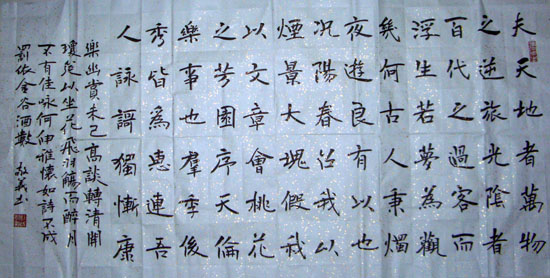 夫天地者萬物
之逆旅光陰者
百代之過客而
浮生若夢為觀
幾何古人秉燭
夜遊良有以也
况陽春召我以
煙景大塊假我
以文章會桃花
之芳園序天倫
樂事也羣季後
秀皆為惠連吾
人詠謌獨慚康
樂幽賞未已高談轉清開
瓊筵以坐花飛羽觴而醉月
不有佳咏何伸雅懷如詩不成
罰依金谷酒數